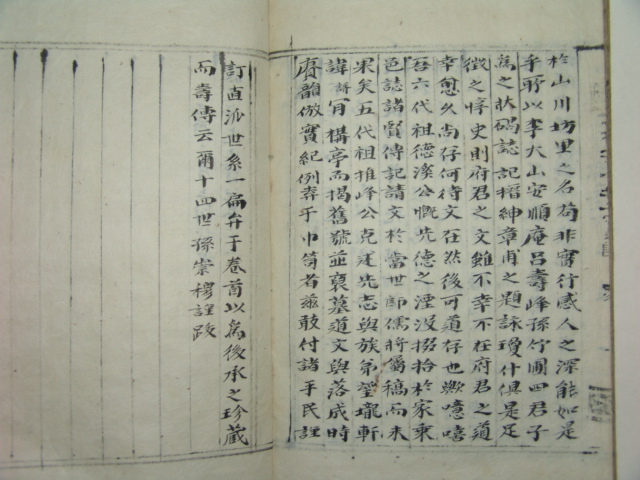 於山川坊里之名苟非實行感人之深能如是
乎所以李大山安順庵呂壽峰孫竹圃四君子
爲之狀碣誌記搢紳章甫之題詠瓊什俱是足
徵之惇史則府君之文雖不幸不在府君之道
幸愈久尚存何待文在然後可道存也歟噫嘻
吾六代祖德溪公慨先德之湮沒掇拾於家乘
邑誌諸賢傳記請文於當世師儒將屬稿而未
果矣五代祖推峰公克追先志與族弟瑩瓏軒
諱 冐構亭而揭舊號並裒墓道文與落成時
賡韻倣實紀例弆于巾笥者玆敢付諸手民註
訂直派世系一扁弁于卷首以爲後承之珍藏
而壽傳云爾十四世孫崇穆謹跋